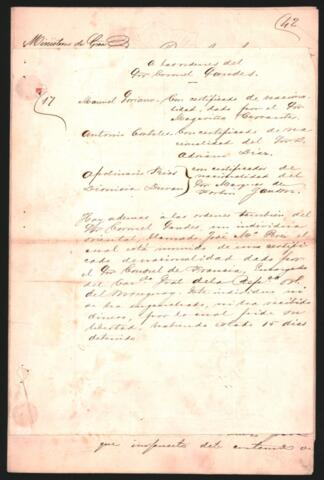 42
Ministerio de
A las ordenes del
Sor Coronel Gaudes.
17
Manuel Soriano, Con certificado de nacionalidad, dado por el Sor
Magariños Cervantes.
Antonio Con certificado de nacionalidad del Sor D.
Adriano Diaz.
Apolinario Rios
Dionicia Duran
con certificados de
nacionalidad del
Sor Marques de
Hay ademas a las ordenes tambien del
Sor Coronel Gaudes, un individuo
oriental, llamado José Ma el
cual está munido de un certificado de nacionalidad dado por
el Sor Consul de Francia, Encargado
del Con. Gral de la Repca Ol.
del Uruguay. Este individuo ni
se ha enganchado, ni ha recibido
dinero, por lo cual pide su
libertad, habiendo 15 dias
detenido.
que impuesto del contenido